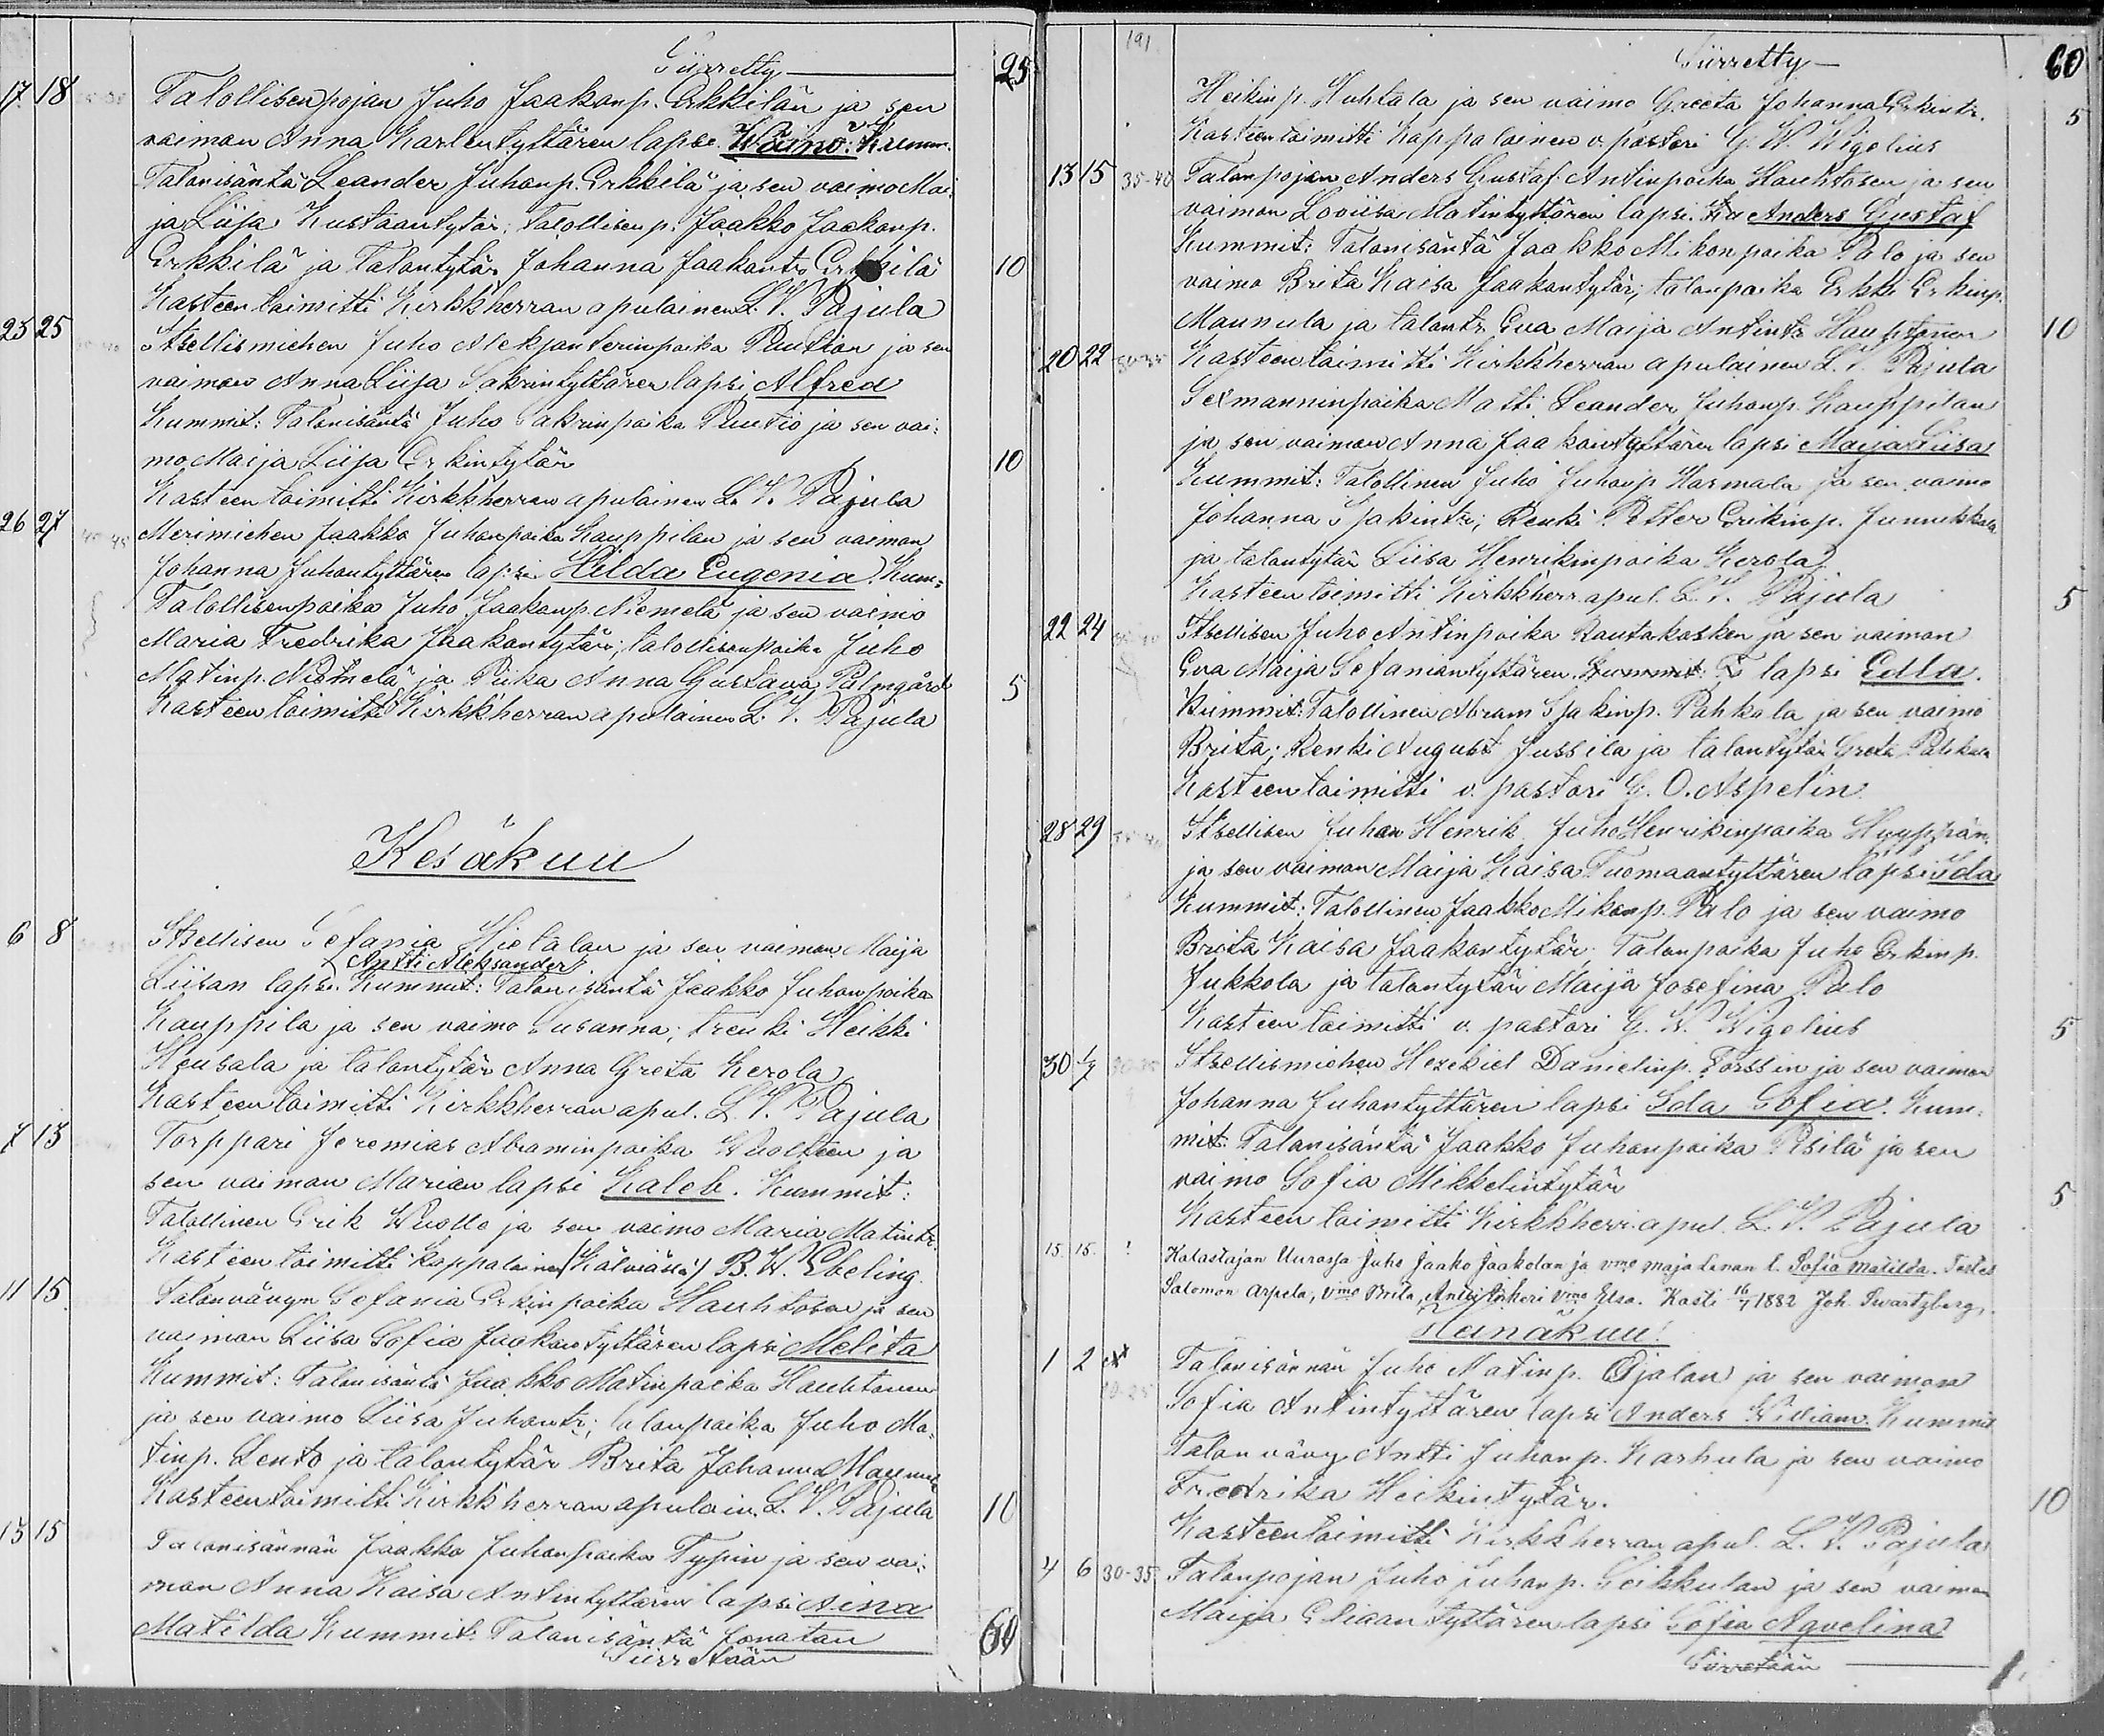 Siirretty 25
17 18 Talollisenpojan Juho Jaakonp. Erkkilän ja sen
vaimon Anna Karlentyttären lapse Wäinö. Kumm.
Talonisäntä Leander Juhonp. Erkkilä ja sen vaimo Mai-
ja Liija Kustaantytär; Talollisenp. Jaakko Jaakonp.
Erkkilä ja Talontytär Johanna Jaakontr Erkkilä 10
Kasteen toimitti Kirkkherran apulainen L. V. Pajula
25 25 Itsellismiehen Juho Aleksanterinpoika Ruution ja sen
vaimon Anna Liija Sakrintyttären lapsi Alfred
Kummit: Talonisäntä Juho Sakrinpoika Ruutio ja sen vai-
mo Maija Liija Erkintytär 10
Kasteen toimitti Kirkkherran apulainen L. V. Pajula
26 27 Merimiehen Jaakko Juhonpoika Kauppilan ja sen vaimon
Johanna Juhontyttären lapsi Hilda Eugenia. Kum=
Talollisenpoika Juho Jaakonp. Niemelä ja sen vaimo
Maria Fredrika Jaakontytär; talollisenpoika Juho
Matinp. Niemelä ja Piika Anna Gustava Palmgård 5
Kasteen toimitti Kirkkherran apulainen L. V. Pajula
Kesäkuu
6 8 Itsellisen Sefania Hietalan ja sen vaimon Maija
Antti Aleksander
Liisan lapsi. Kummit: Talonisäntä Jaakko Juhonpoika
Kauppila ja sen vaimo Susanna; trenki Heikki
Heusala ja talontytär Anna Greta Kerola
Kasteen toimitti Kirkkherran apul. L. V. Pajula
7 13 Torppari Jeremias Abraminpoika Wuolteen ja
sen vaiman Marian lapsi Kaleb. Kummit:
Talollinen Erik Wuolle ja sen vaimo Maria Matintr.
Kasteen toimitti Kappalainen (Kälviässä) B. W. Ebeling.
11 15 Talonvävyn Sefania Erkinpoika Hauhtosen ja sen
vaiman Liisa Sofia Jaakontyttären lapsi Melita
Kummit: Talonisäntä Jaakko Matinpoika Hauhtonen
ja sen vaimo Liisa Juhontr; talonpoika Juho Ma-
tinp. Lento ja talontytär Brita Johanna Maunu
Kasteen toimitti Kirkkherran apulain. L. V. Pajula 10
13 15 Talonisännän Jaakko Juhonpoika Typin ja sen vai-
man Anna Kaisa Antintyttären lapsi Aina
Matilda Kummit: Talonisäntä Jonatan
Siirretään 60
191
Siirretty 60
Heikinp. Huhtala ja sen vaimo Greeta Johanna Erkintr. 5
Kasteen toimitti Kappalainen v. pastori G. W. Wigelius
13 15 35-40 Talonpojan Anders Gustaf Antinpoika Hauhtosen ja sen
vaimon Loviisa Matintyttären lapsi. Anders Gustaf
Kummit: Talonisäntä Jaakko Mikonpoika Palo ja sen
vaimo Brita Kaisa Jaakontytär; talonpoika Erkki Erkinp.
Maunula ja talontr. Eva Maija Antintr Hauhtonen 10
20 22 30-35 Kasteen toimitti Kirkkherran apulainen L. V. Pajula
Sexmanninpoika Matti Leander Juhonp. Kauppilan
ja sen vaimon Anna Jaakontyttären lapsi Maija Liisa
Kummit: Talollinen Juho Juhonp Harmala ja sen vaimo
Johanna Isakintr; Renki Petter Erikinp. Junnikkala
ja talontytär Liisa Henrikinpoika Kerola
Kasteen toimitti Kirkkherr. apul. L. V. Pajula 5
22 24 Itsellisen Juho Antinpoika Rautakosken ja sen vaiman
Eva Maija Sefaniantyttären. Kummit: lapsi Edla.
Kummit: Talollinen Abram Isakinp. Pahkala ja sen vaimo
Brita; Renki August Jussila ja talontytär Greta Pahkala
Kasteen toimitti v. pastori G. O. Aspelin
28 29 Itsellisen Juhan Henrik Juho Henrikinpoika Hyyppän
ja sen vaiman Maija Kaisa Tuomaantyttären lapsi Ida
Kummit: Talollinen Jaakko Mikonp. Palo ja sen vaimo
Brita Kaisa Jaakontytär; Talonpoika Juho Erkinp.
Jukkola ja talontytär Maija Josefina Palo
Kasteen toimitti v. pastori G. W. Wigelius 5
30 1/7 Itsellismiehen Hezekiel Danielinp. Forssin ja sen vaimon
Johanna Juhontyttären lapsi Ida Sofia. Kum-
mit: Talonisäntä Jaakko Juhonpoika Pesilä ja sen
vaimo Sofia Mikkelintytär 5
Kasteen toimitti Kirkkherr. apul. L. V. Pajula
15. 15. ! Kalastajan Uurasja Juho Jaako Jaakolan ja vmo Maja Lenan l. Sofia Matilda. Testes
Salomon Arpela, vmo Brita, Antti Ankeri vmo Elsa. Kasti 16/7 1882 Joh. Swartzberg.
Heinäkuu.
1 2 Talonisännän Juho Matinp. Ojalan ja sen vaimon
Sofia Antintyttären lapsi Anders William. Kummit
Talonvävy Antti Juhonp. Karhula ja sen vaimo
Fredrika Heikintytär. 10
Kasteen toimitti Kirkkherran apul. L. V. Pajula
4 6 30-35 Talonpojan Juho Juhonp. Seikkulan ja sen vaimon
Maija Eliaantyttären lapsi Sofia Aqvelina
Siirretään